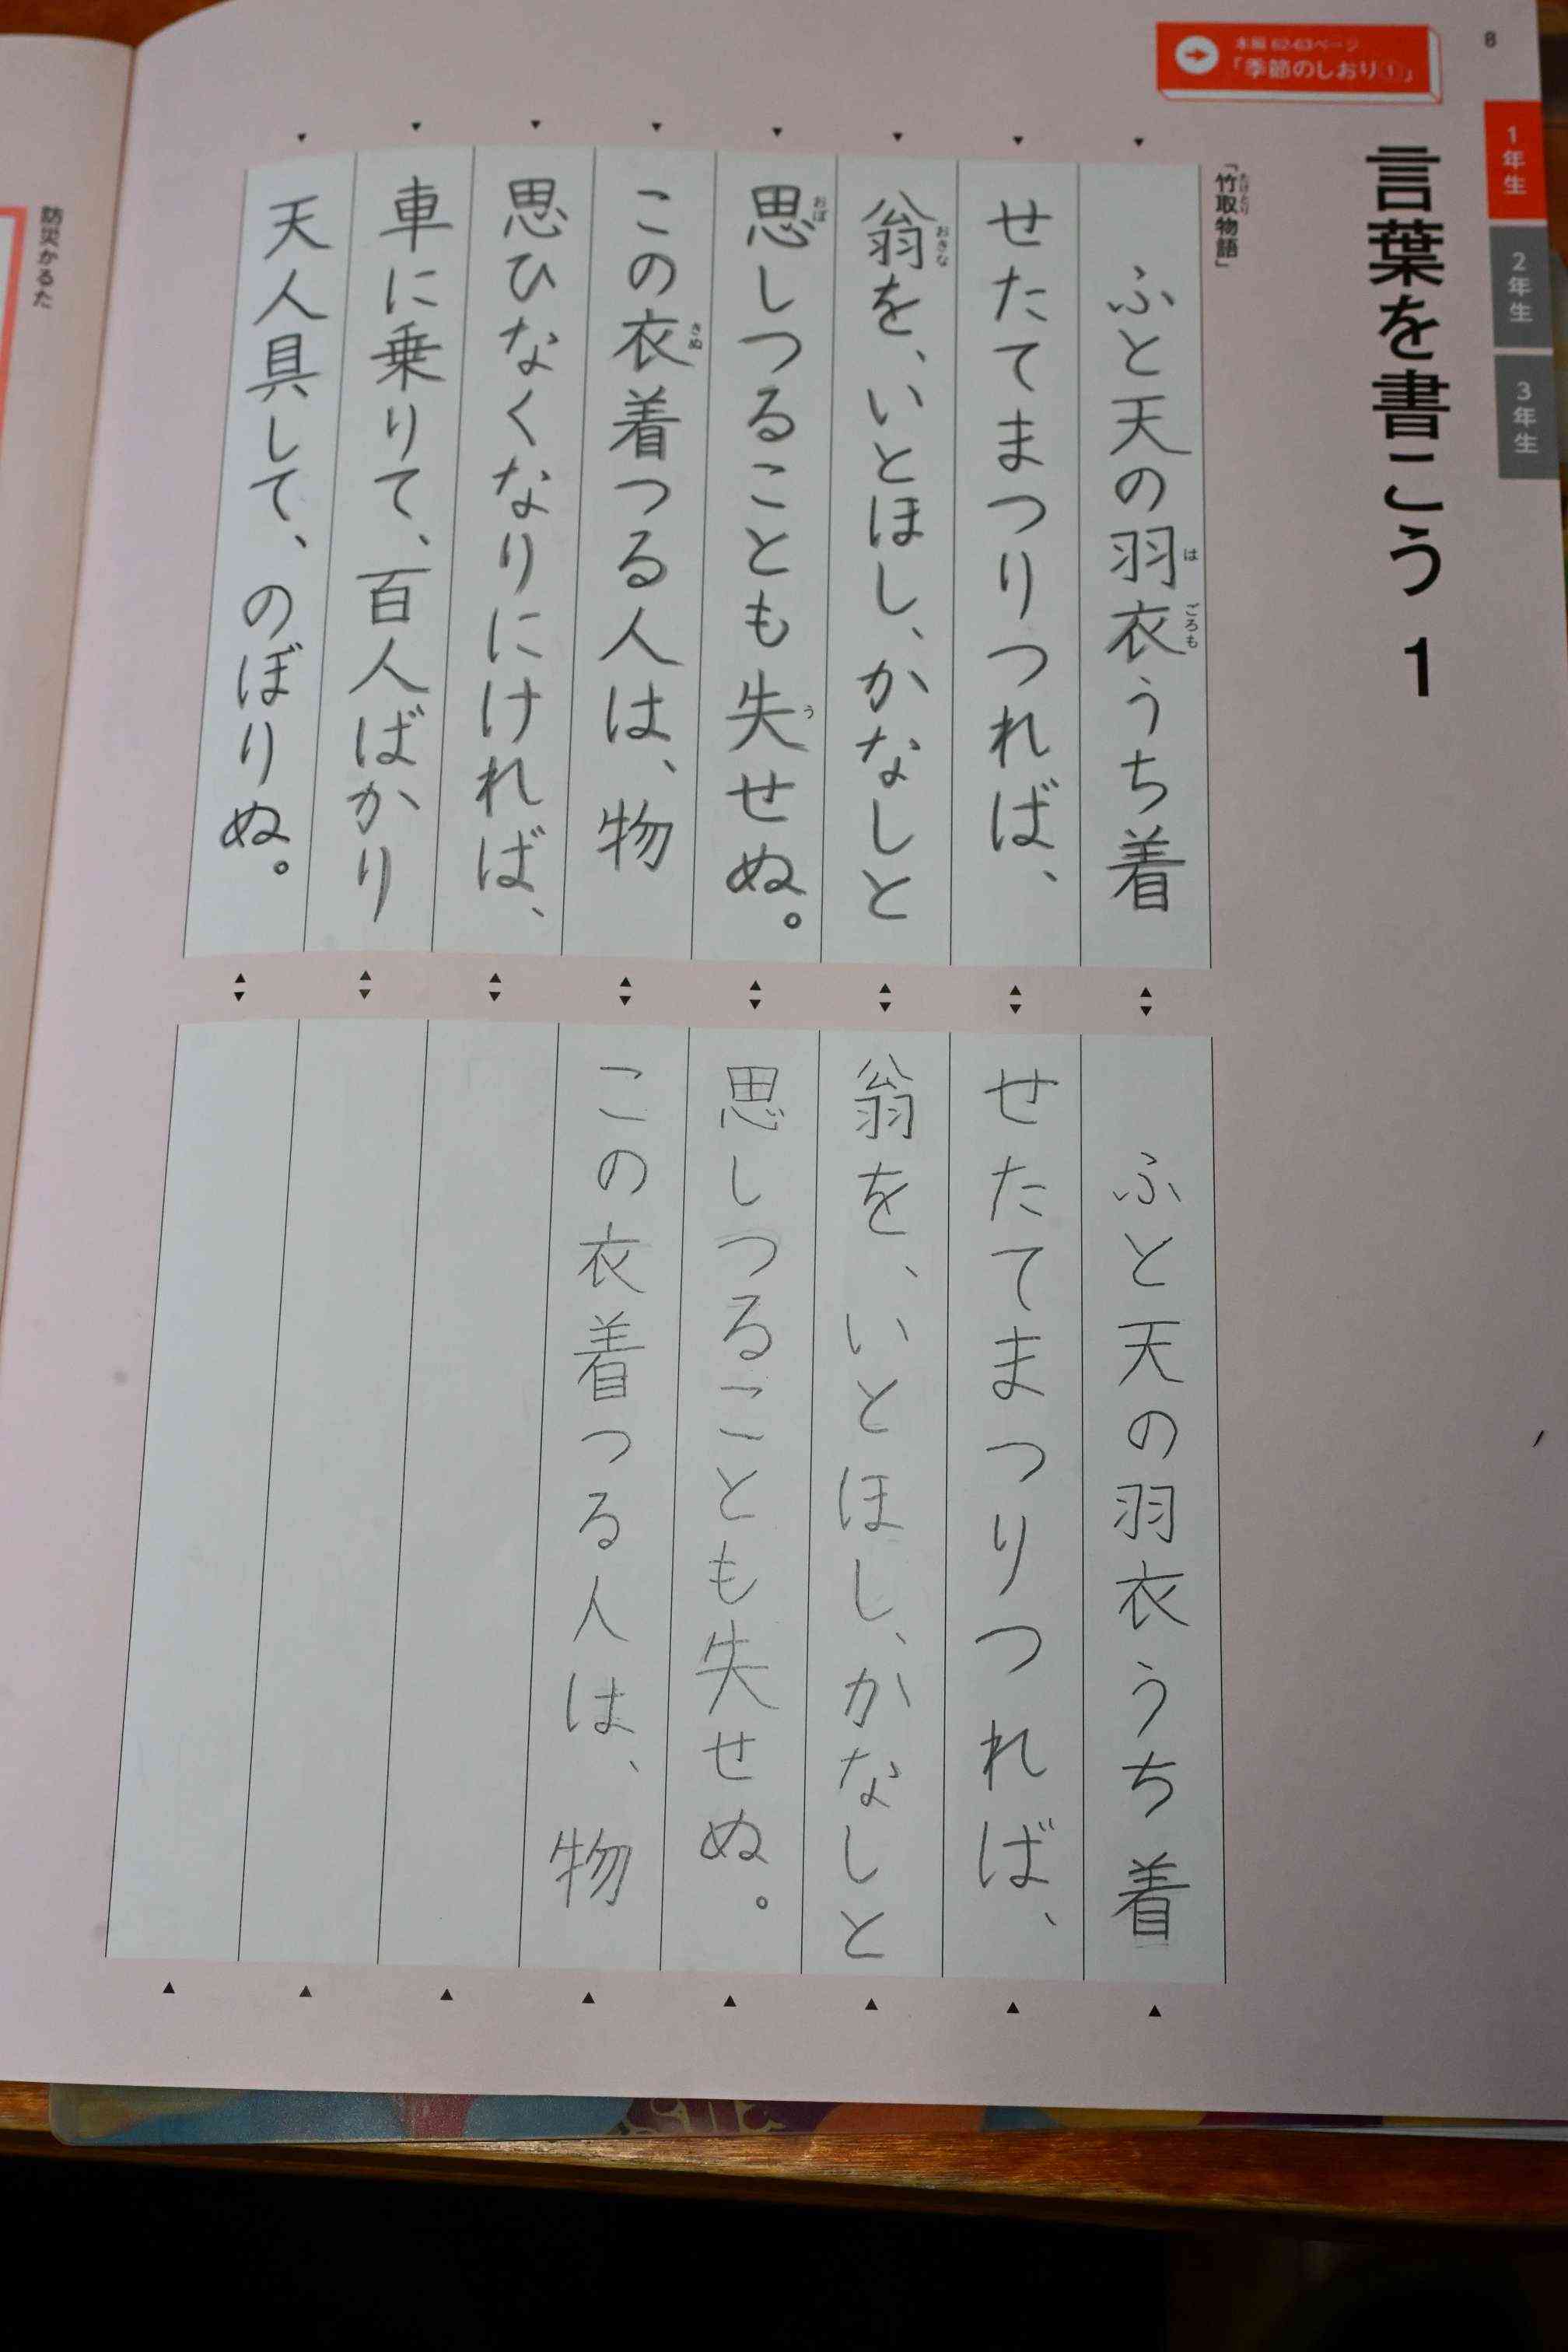 8
本編 62-63ページ
「季節のしおり①」
1年生
2年生
3年生
言葉を書こう 1
「竹取物語」
たけとり
ふと天の羽衣うち着
は
ごろも
せたてまつりつれば、
翁を、いとほし、かなしと
おきな
思しつることも失せぬ。
おぼ
う
この衣着つる人は、物
きぬ
思ひなくなりにければ、
車に乗りて、百人ばかり
天人具して、のぼりぬ。
ふと天の羽衣うち着
せたてまつりつれば、
翁を、いとほし、かなしと
思しつることも失せぬ。
この衣着つる人は、物
防災かるた